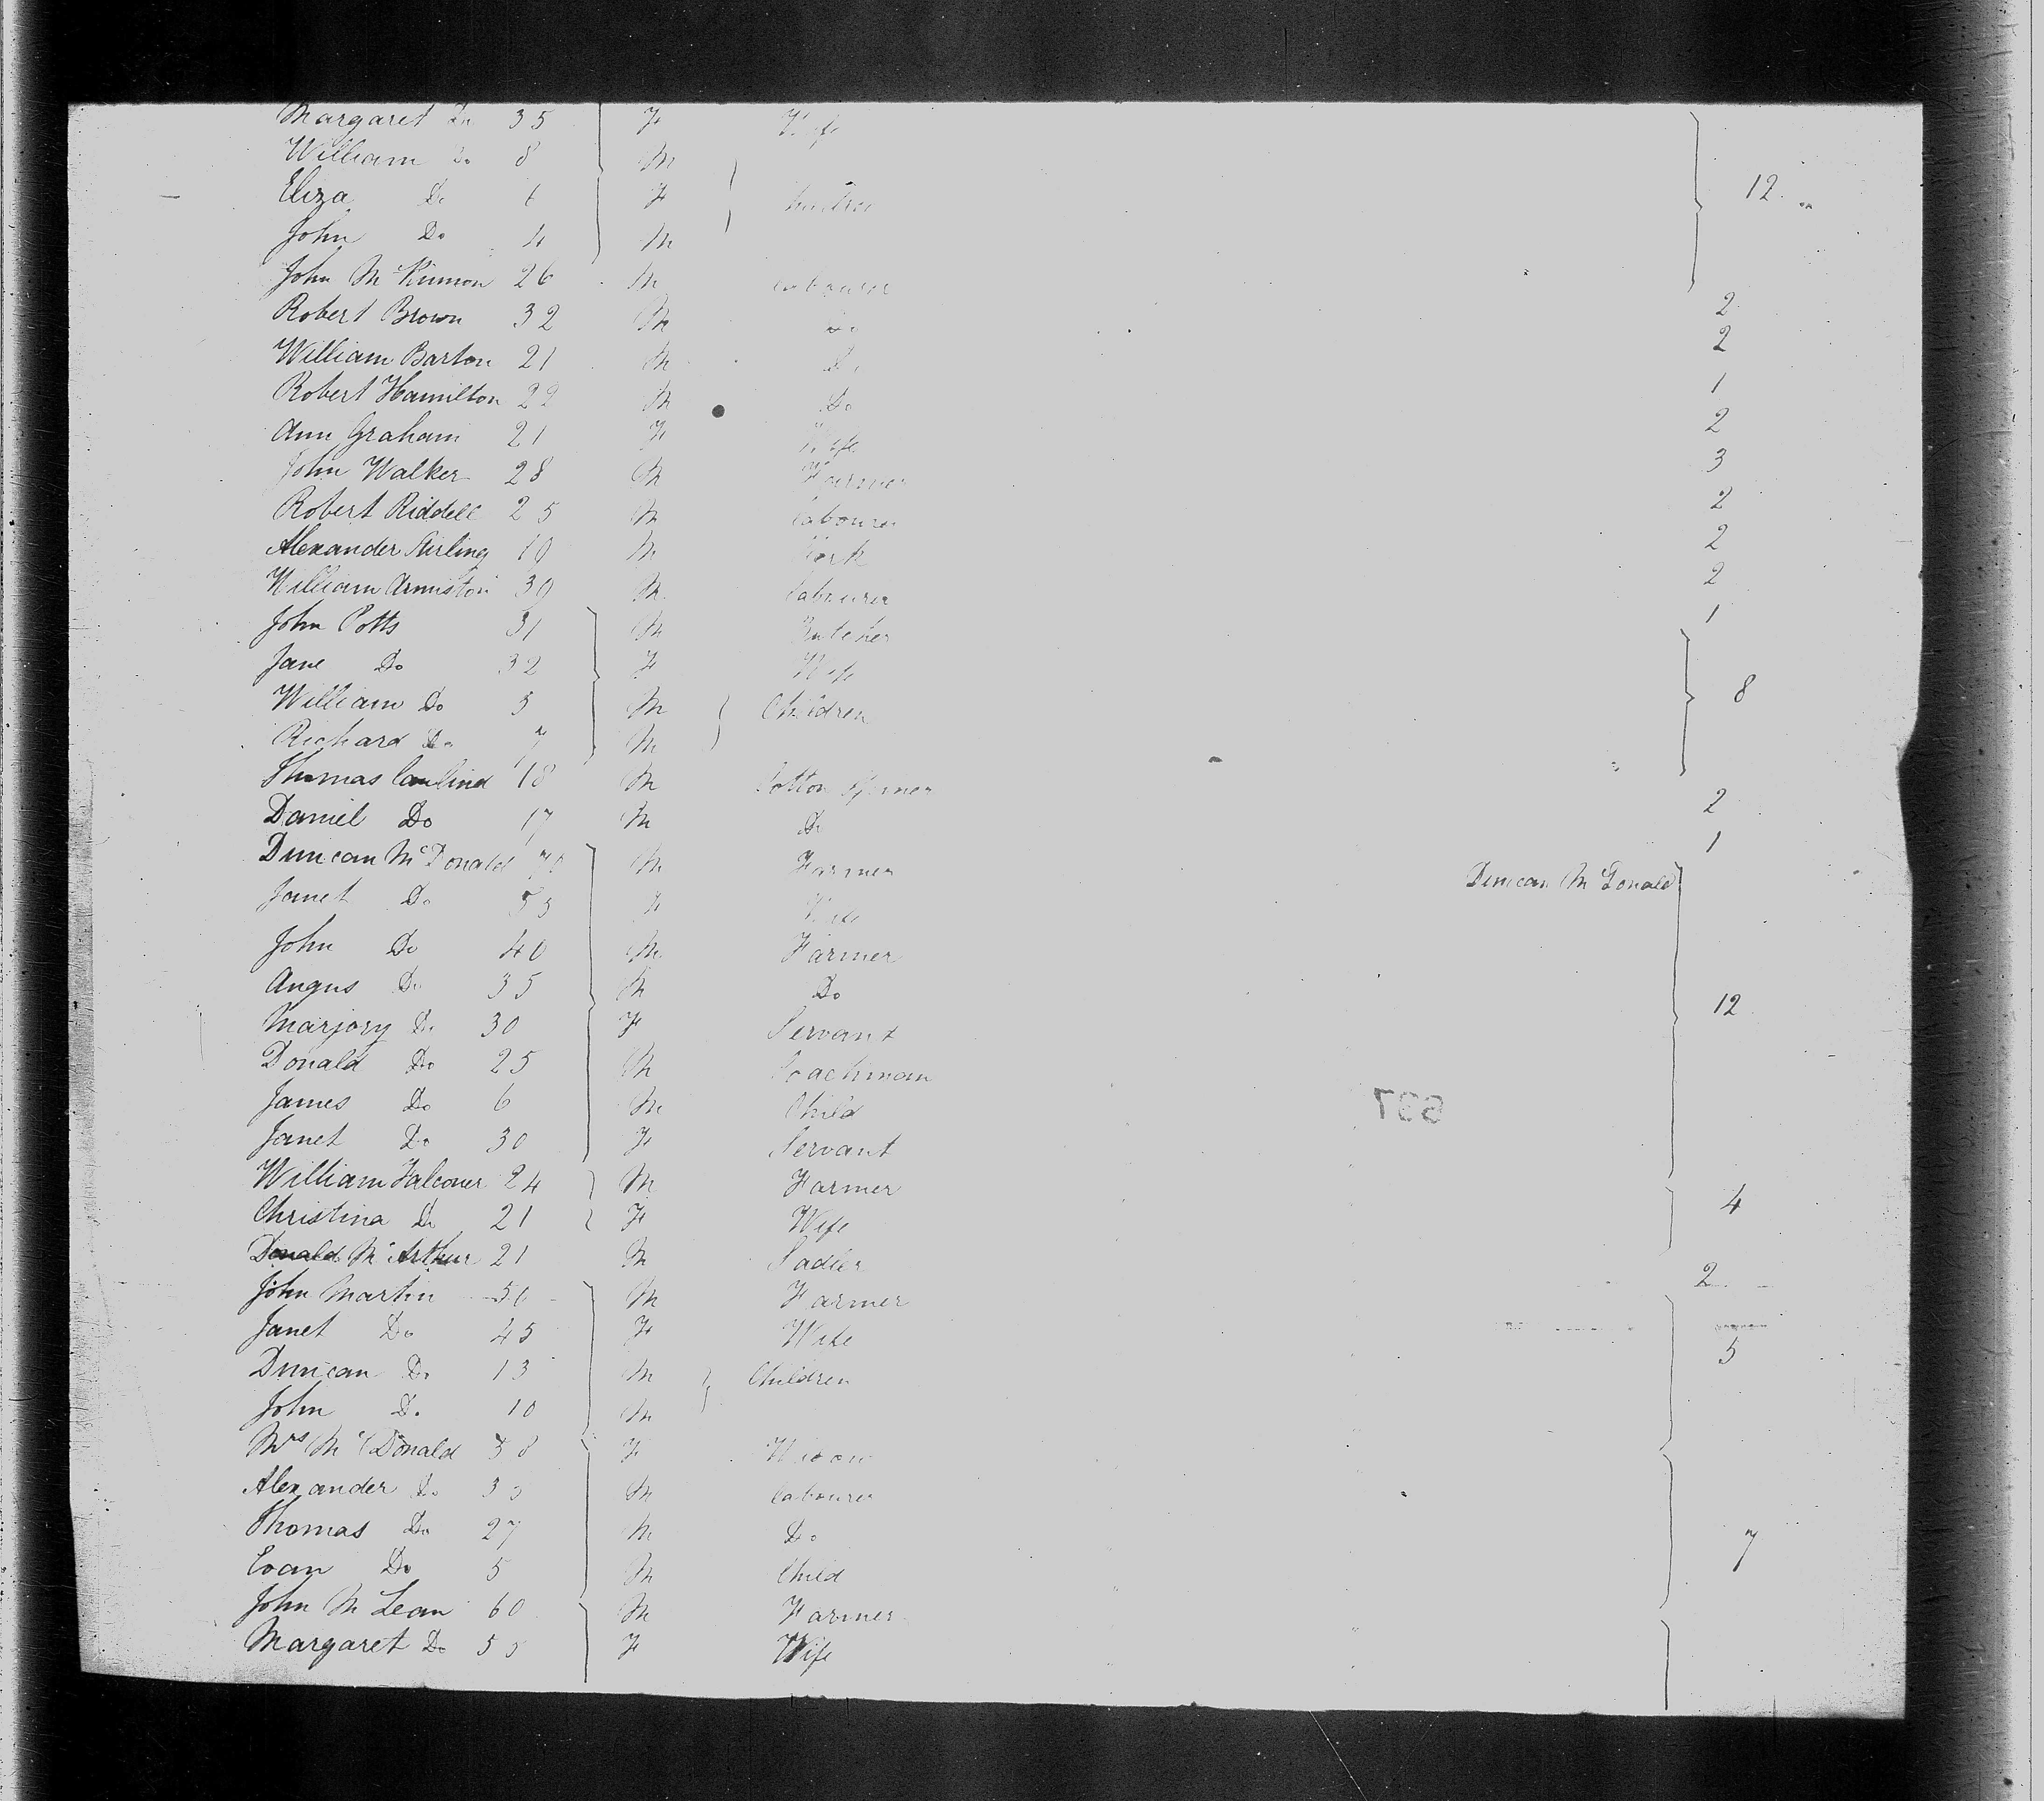 Margaret Do 35 F Wife
William Do 8 M
Eliza Do 6 F 12
John Do 4 M
John McKinnon 26 M labourer
Robert Brown 32 M Do 2
William Barton 21 M Do 2
Robert Hamilton 22 M Do 1
Ann Graham 21 F Wife 2
John Walker 28 M Farmer 3
Robert Riddell 25 M labourer 2
Alexander Stirling 19 M 2
William Armiston 30 M labourer 2
John Potts 31 M Butcher 1
Jane Do 32 F Wife
William Do M Children 8
Richard Do 7 M
Thomas 18 M Cotton Spinner
Daniel Do 17 M Do 2
Duncan McDonald M Farmer 1
Duncan McDonald
Janet Do F Wife
John Do 40 M Farmer
Angus Do 35 M Do
Marjory Do 30 F Servant 12
Donald Do 25 M Coachman
James Do 6 M Child
Janet Do 30 F Servant
William Falconer 24 M Farmer 4
Christina Do 21 F Wife
Donald McArthur 21 M Sadler 2
John Martin 50 M Farmer
Janet Do 45 F Wife 5
Duncan Do 13 M Children
John Do 10 M
Mrs McDonald F Widow
Alexander Do M labourer
Thomas Do 27 M Do 7
Evan Do 5 M Child
John McLean 60 M Farmer
Margaret Do 55 F Wife